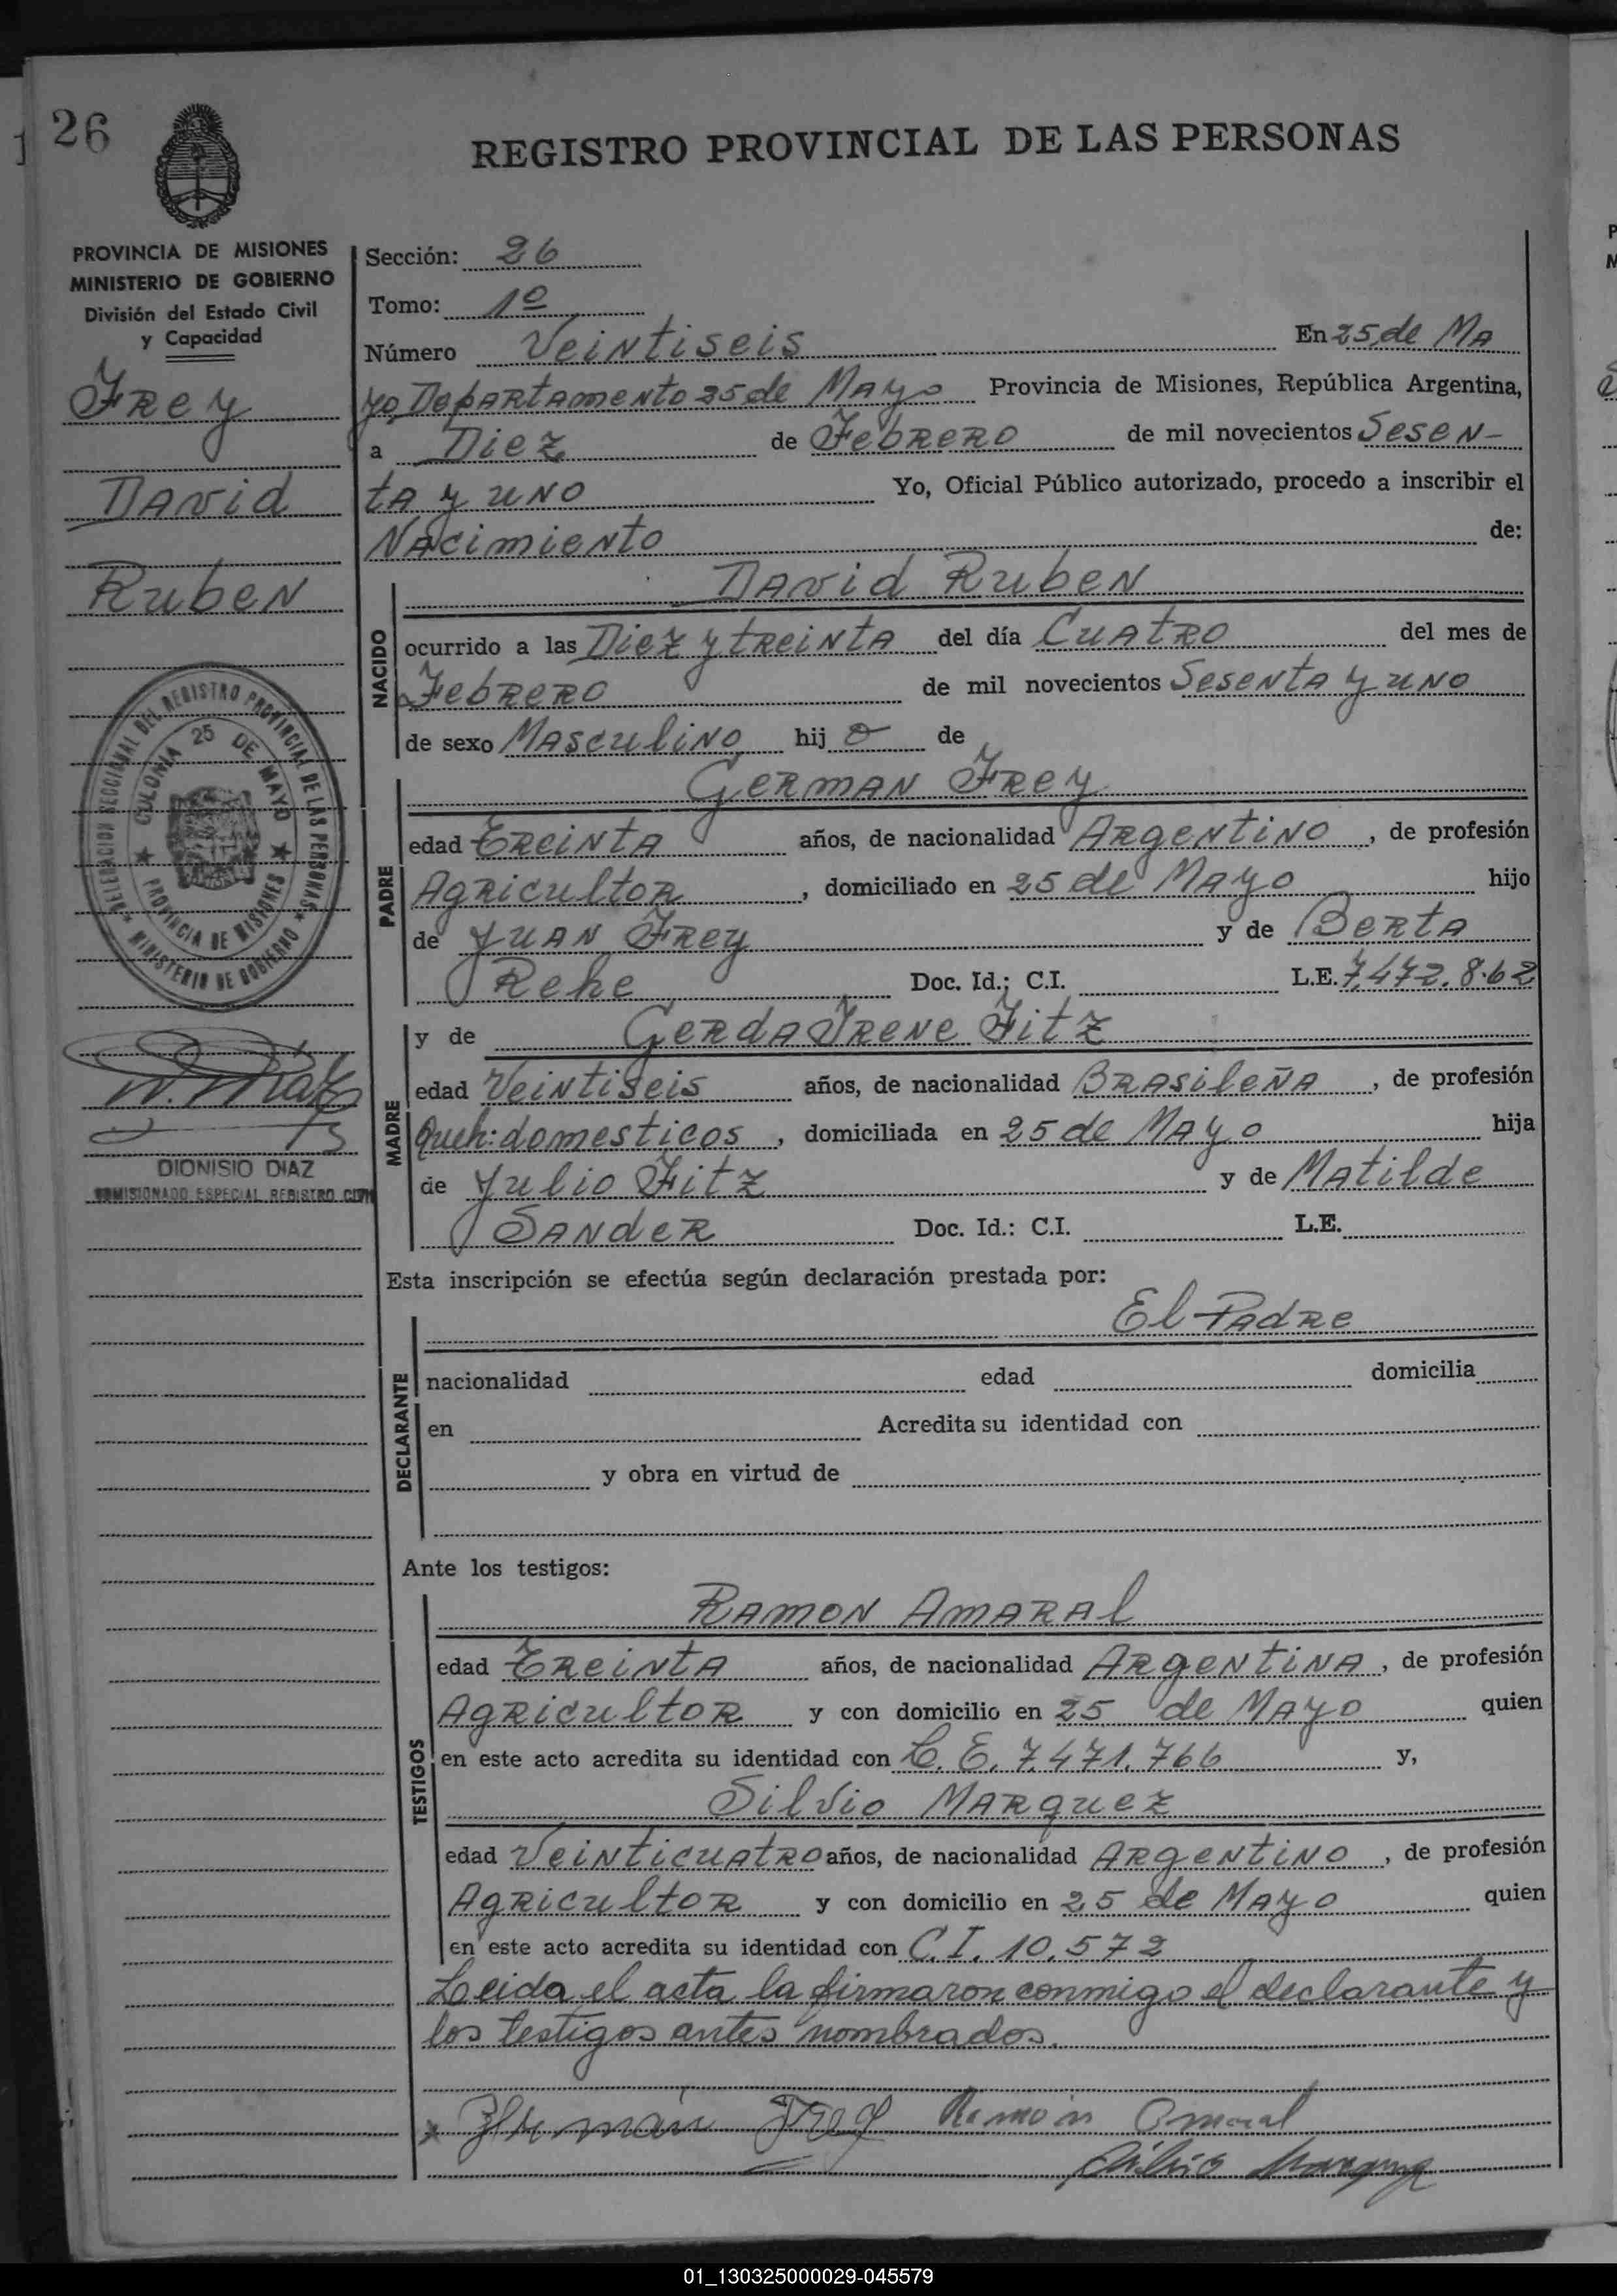 26
REGISTRO PROVINCIAL DE LAS PERSONAS
PROVINCIA DE MISIONES
MINISTERIO DE GOBIERNO
División del Estado Civil
y Capacidad
Frey
David
Ruben
DELEGACION SECCIONAL DEL REGISTRO PROVINCIAL DE LAS PERSONAS
MINISTERIO DE GOBIERNO
COLONIA 25 DE MAYO
PROVINCIA DE MISIONES
DIONISIO DIAZ
COMISIONADO ESPECIAL REGISTRO CIVIL
Sección: 26
Tomo: 1º
Número Veintiseis En 25 de Ma
yo, Departamento 25 de Mayo Provincia de Misiones, República Argentina,
a Diez de Febrero de mil novecientos Sesen-
ta y uno Yo, Oficial Público autorizado, procedo a inscribir el
Nacimiento de:
NACIDO
David Ruben
ocurrido a las Diez y treinta del día Cuatro del mes de
Febrero de mil novecientos Sesenta y uno
de sexo Masculino hij o de
PADRE
German Frey
edad Treinta años, de nacionalidad Argentino, de profesión
Agricultor, domiciliado en 25 de Mayo hijo
de Juan Frey y de Berta
Rehe Doc. Id.; C.I. L.E. 7.472.862
MADRE
y de Gerda Irene Fitz
edad Veintiseis años, de nacionalidad Brasileña, de profesión
Queh: domesticos, domiciliada en 25 de Mayo hija
de Julio Fitz y de Matilde
Sander Doc. Id.: C.I. L.E.
Esta inscripción se efectúa según declaración prestada por:
DECLARANTE
El Padre
nacionalidad edad domicilia
en Acredita su identidad con
y obra en virtud de
Ante los testigos:
TESTIGOS
Ramon Amaral
edad Treinta años, de nacionalidad Argentina, de profesión
Agricultor y con domicilio en 25 de Mayo quien
en este acto acredita su identidad con L.E. 7.471.766 y,
Silvio Marquez
edad Veinticuatro años, de nacionalidad Argentino, de profesión
Agricultor y con domicilio en 25 de Mayo quien
en este acto acredita su identidad con C.I. 10.572
Leida el acta la firmaron conmigo el declarante y
los testigos antes nombrados.
x Herman Frey Ramón Amaral
Silvio Marquez
01_130325000029-045579